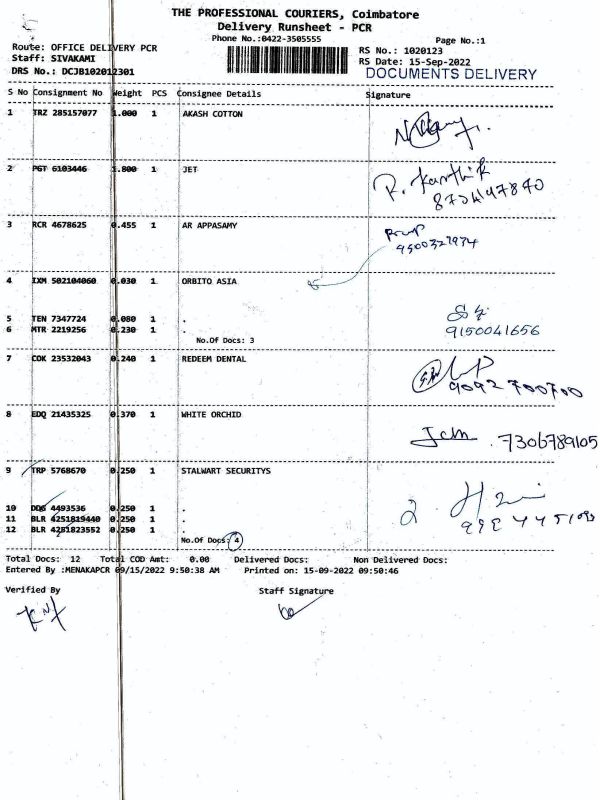 THE PROFESSIONAL COURIERS, Coimbatore
Delivery Runsheet - PCR
Phone No.:0422-3505555
Page No.:1
Route: OFFICE DELIVERY PCR
RS No.: 1020123
Staff: SIVAKAMI
RS Date: 15-Sep-2022
DRS No.: DCJB102012301
DOCUMENTS DELIVERY
S No Consignment No Weight PCS Consignee Details Signature
1 TRZ 285157077 1.000 1 AKASH COTTON
2 PGT 6103446 1.800 1 JET
R. Karthik
8734147840
3 RCR 4678625 0.455 1 AR APPASAMY
4 IXM 502104060 0.030 1 ORBITO ASIA
5 TEN 7347724 0.080 1 .
6 MTR 2219256 0.230 1 .
9150041656
No.Of Docs: 3
7 COK 23532043 0.240 1 REDEEM DENTAL
9092 700700
8 EDQ 21435325 0.370 1 WHITE ORCHID
7306789105
9 TRP 5768670 0.250 1 STALWART SECURITYS
10 DDG 4493536 0.250 1 .
11 BLR 4251819440 0.250 1 .
12 BLR 4251823552 0.250 1 .
No.Of Docs: 4
Total Docs: 12 Total COD Amt: 0.00 Delivered Docs: Non Delivered Docs:
Entered By :MENAKAPCR 09/15/2022 9:50:38 AM Printed on: 15-09-2022 09:50:46
Verified By Staff Signature